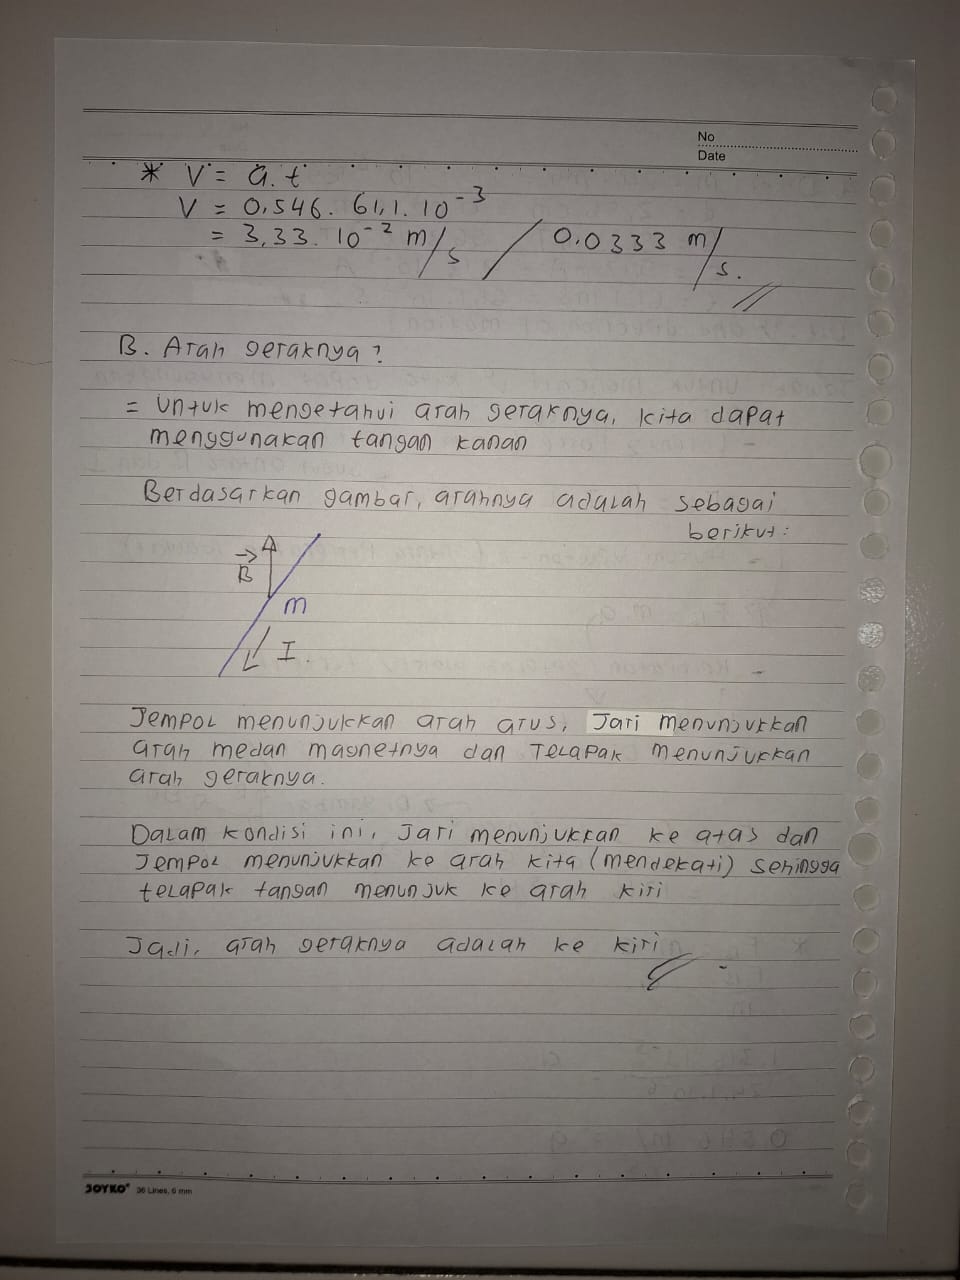 No
Date
* V = a.t
V = 0,546. 61,1. 10⁻³
= 3,33. 10⁻² m/s / 0,0333 m/s.
B. Arah geraknya?
= Untuk mengetahui arah geraknya, kita dapat
menggunakan tangan kanan
Berdasarkan gambar, arahnya adalah sebagai
berikut:
B
m
I
Jempol menunjukkan arah arus, Jari menunjukkan
arah medan magnetnya dan Telapak menunjukkan
arah geraknya.
Dalam kondisi ini, Jari menunjukkan ke atas dan
Jempol menunjukkan ke arah kita (mendekati) sehingga
telapak tangan menunjuk ke arah kiri
Jadi, arah geraknya adalah ke kiri
JOYKO 36 Lines, 6 mm